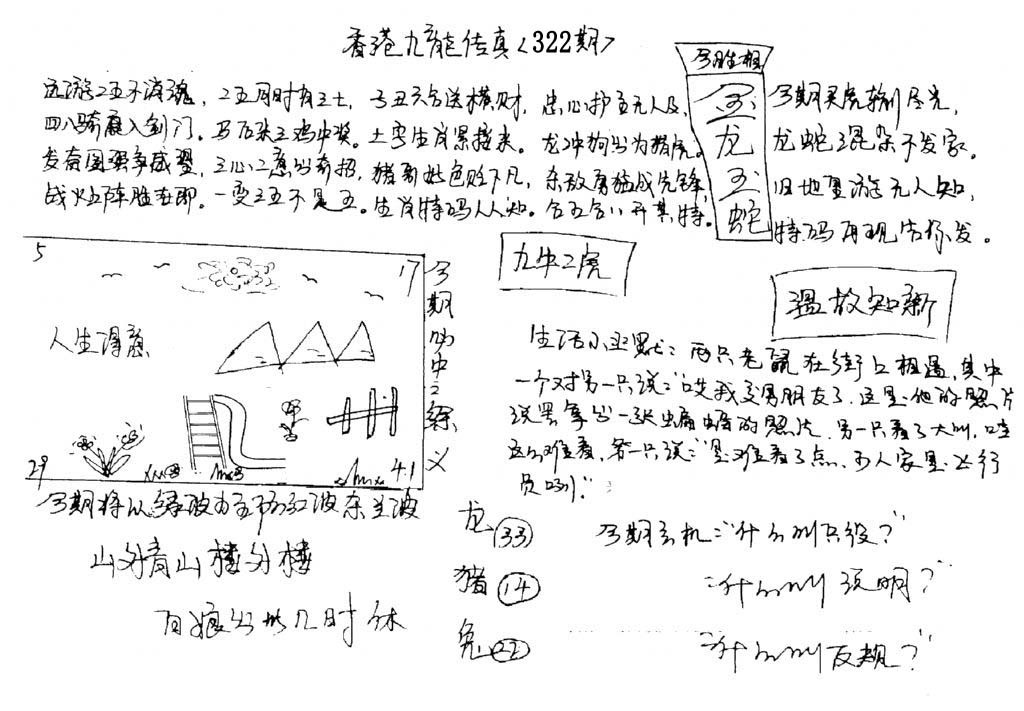 香港九龙传真<322期>
今期生肖
玉
龙
玉
蛇
二五同时有王七，子丑六合送横财，忠心护主无人及，
四八骑鹿入剑门。马后张三鸡中奖。土字生肖累接来。龙冲狗出为猪虎。
发奋图强争盛望，三心二意出奇招，猪哥好色贬下凡，杀敌
战火 阵胜在即。一变三五不是五。生肖特码人人知。合五合八开其特。
今期买虎输尽光，
龙蛇混杂不发家。
旧地重游无人知，
特码再现告你发。
九牛二虎
温故知新
5
17
人生得意
29
41
今期 中之综义
今期将以绿波为主防红波杂兰波
山外青山楼外楼
百娘 几时休
生活小幽默：两只老鼠在街上相遇，其中
一个对另一只说："哎我交男朋友了，这是他的照片
说罢拿出一张蝙蝠的照片，另一只看了大叫，哇
这么难看，第一只说："是难看了点，可人家是飞行
员咧！"
龙 33
猪 14
兔 22
今期玄机："什么叫兵役？"
"什么叫说明？"
"什么叫反规？"